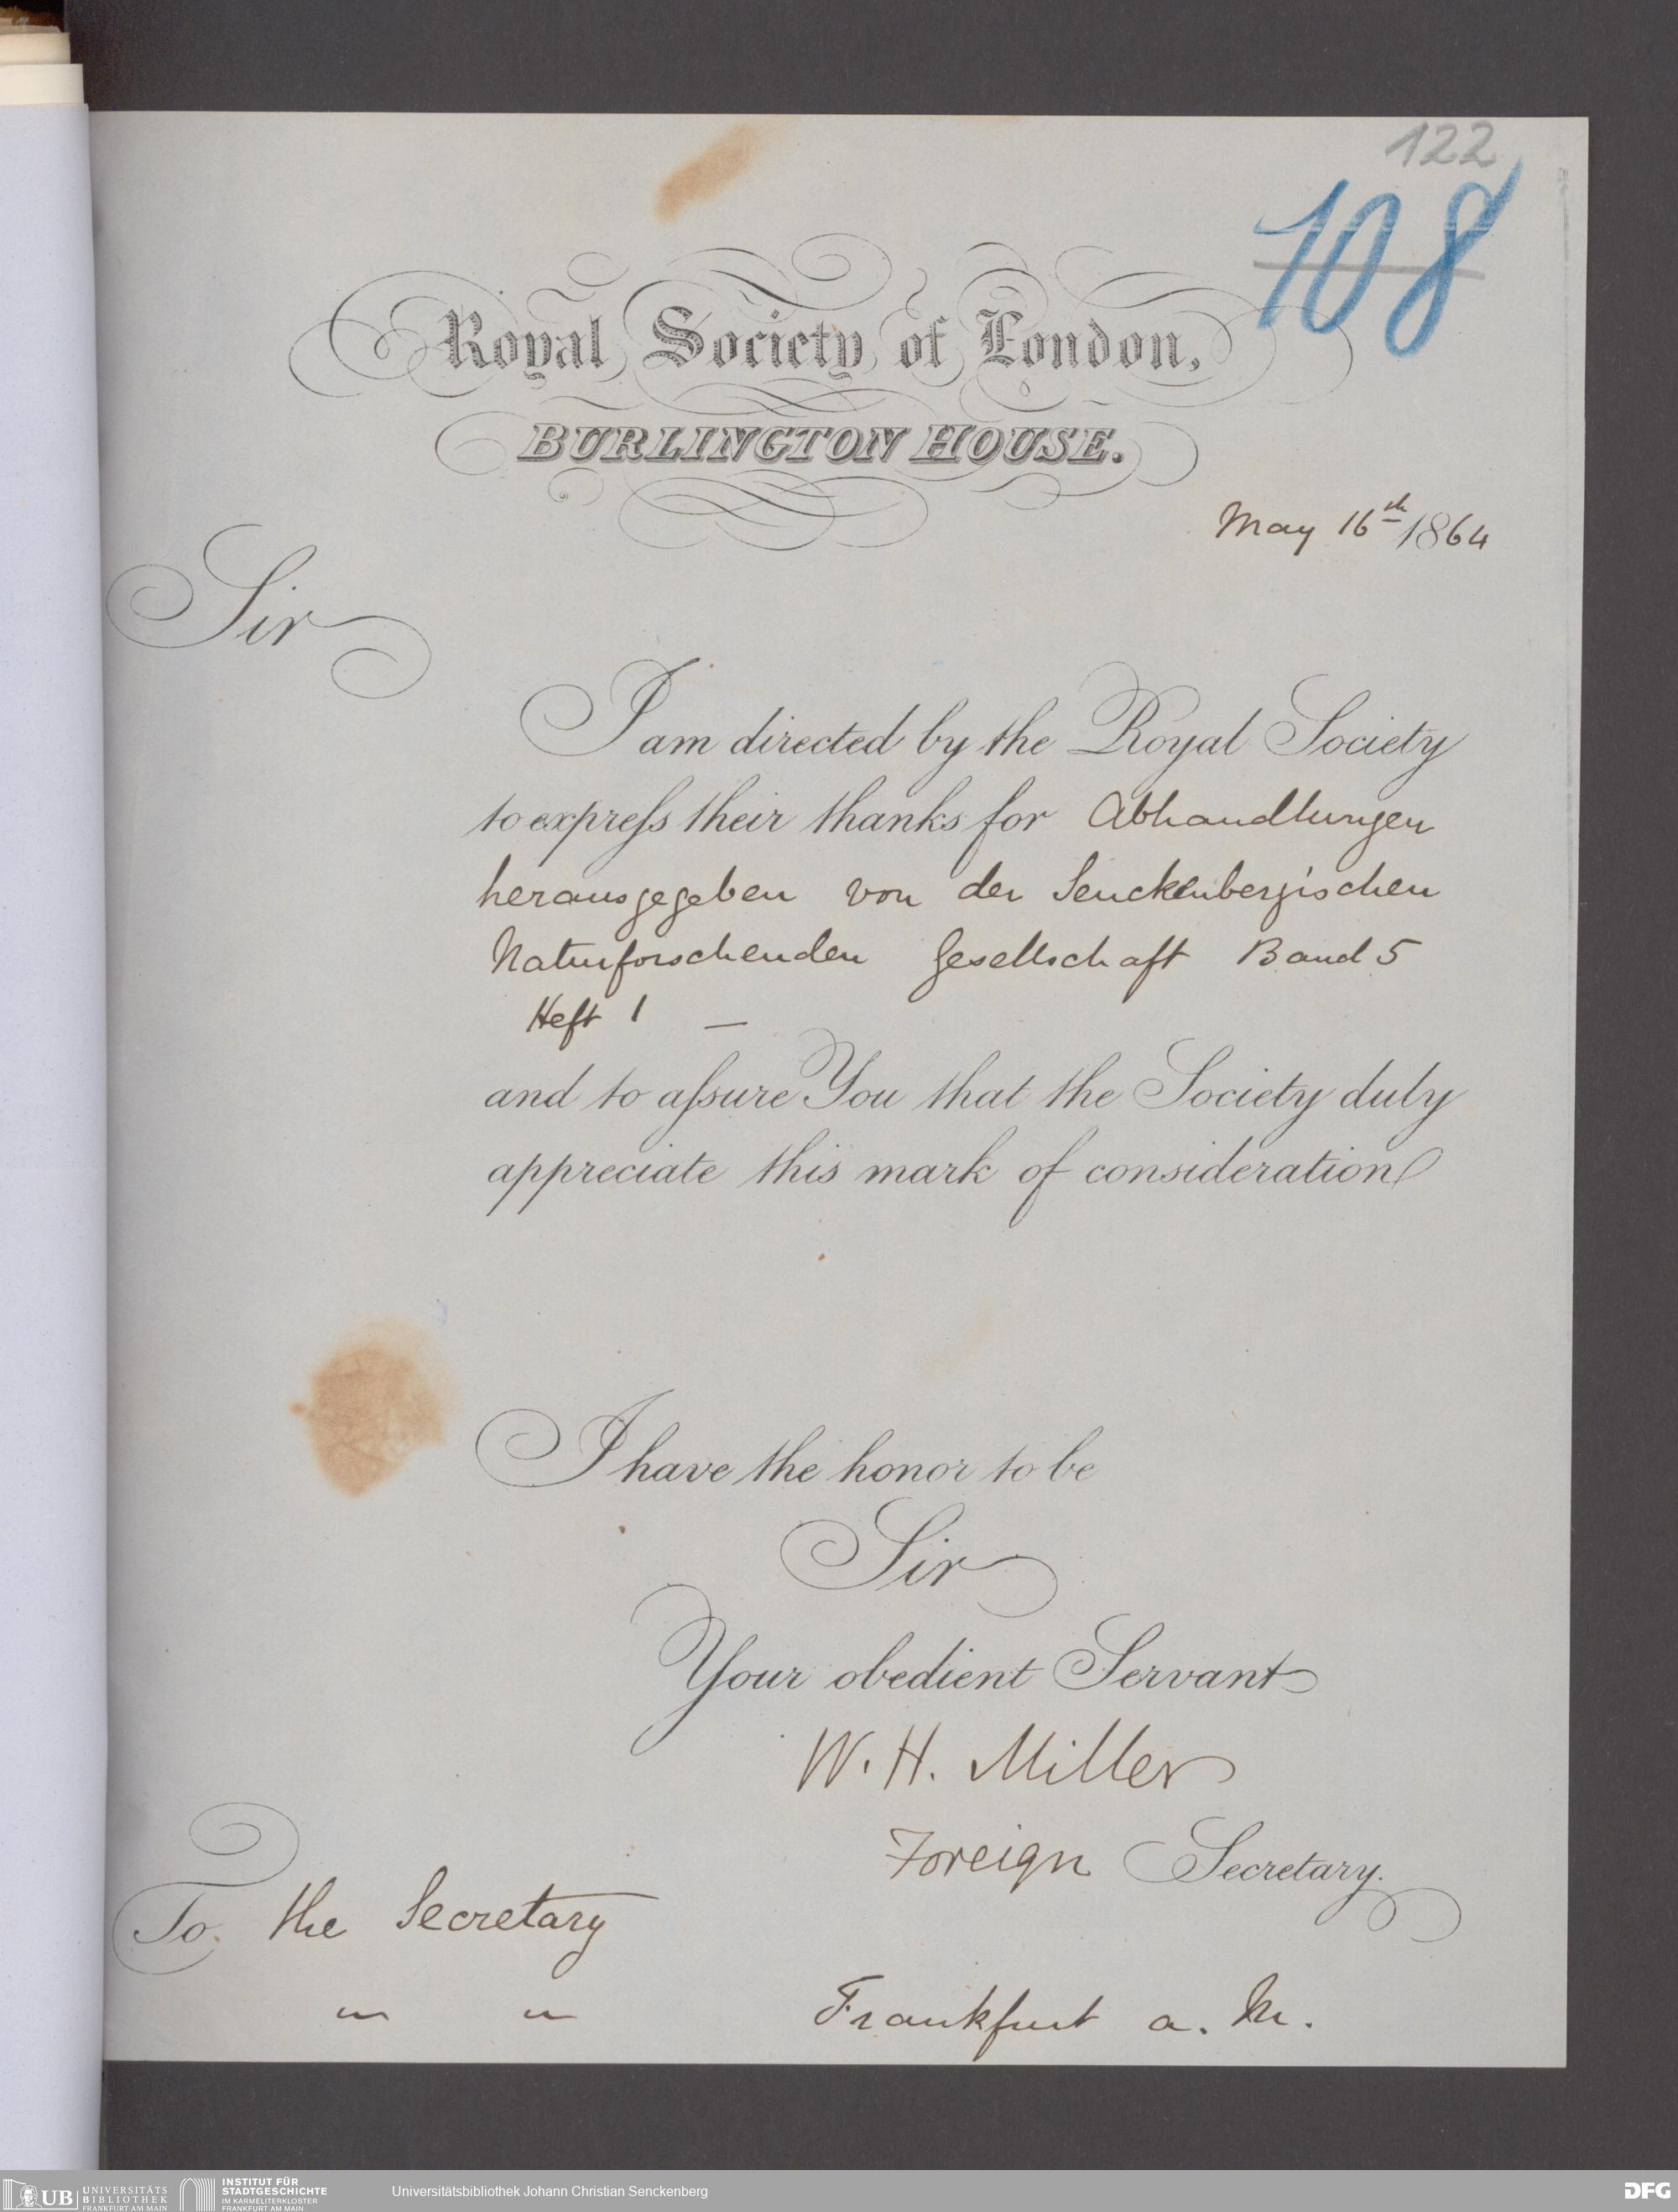 122
108
Royal Society of London,
BURLINGTON HOUSE.
May 16th 1864
Sir
I am directed by the Royal Society
to expreſs their thanks for Abhandlungen
herausgegeben von der Senckenbergischen
Naturforschenden Gesellschaft Band 5
Heft 1 —
and to aſsure You that the Society duly
appreciate this mark of consideration
I have the honor to be
Sir
Your obedient Servant
W. H. Miller
Foreign Secretary.
To the Secretary
" " Frankfurt a. M.
UB UNIVERSITÄTS
BIBLIOTHEK
FRANKFURT AM MAIN
INSTITUT FÜR
STADTGESCHICHTE
IM KARMELITERKLOSTER
FRANKFURT AM MAIN
Universitätsbibliothek Johann Christian Senckenberg
DFG